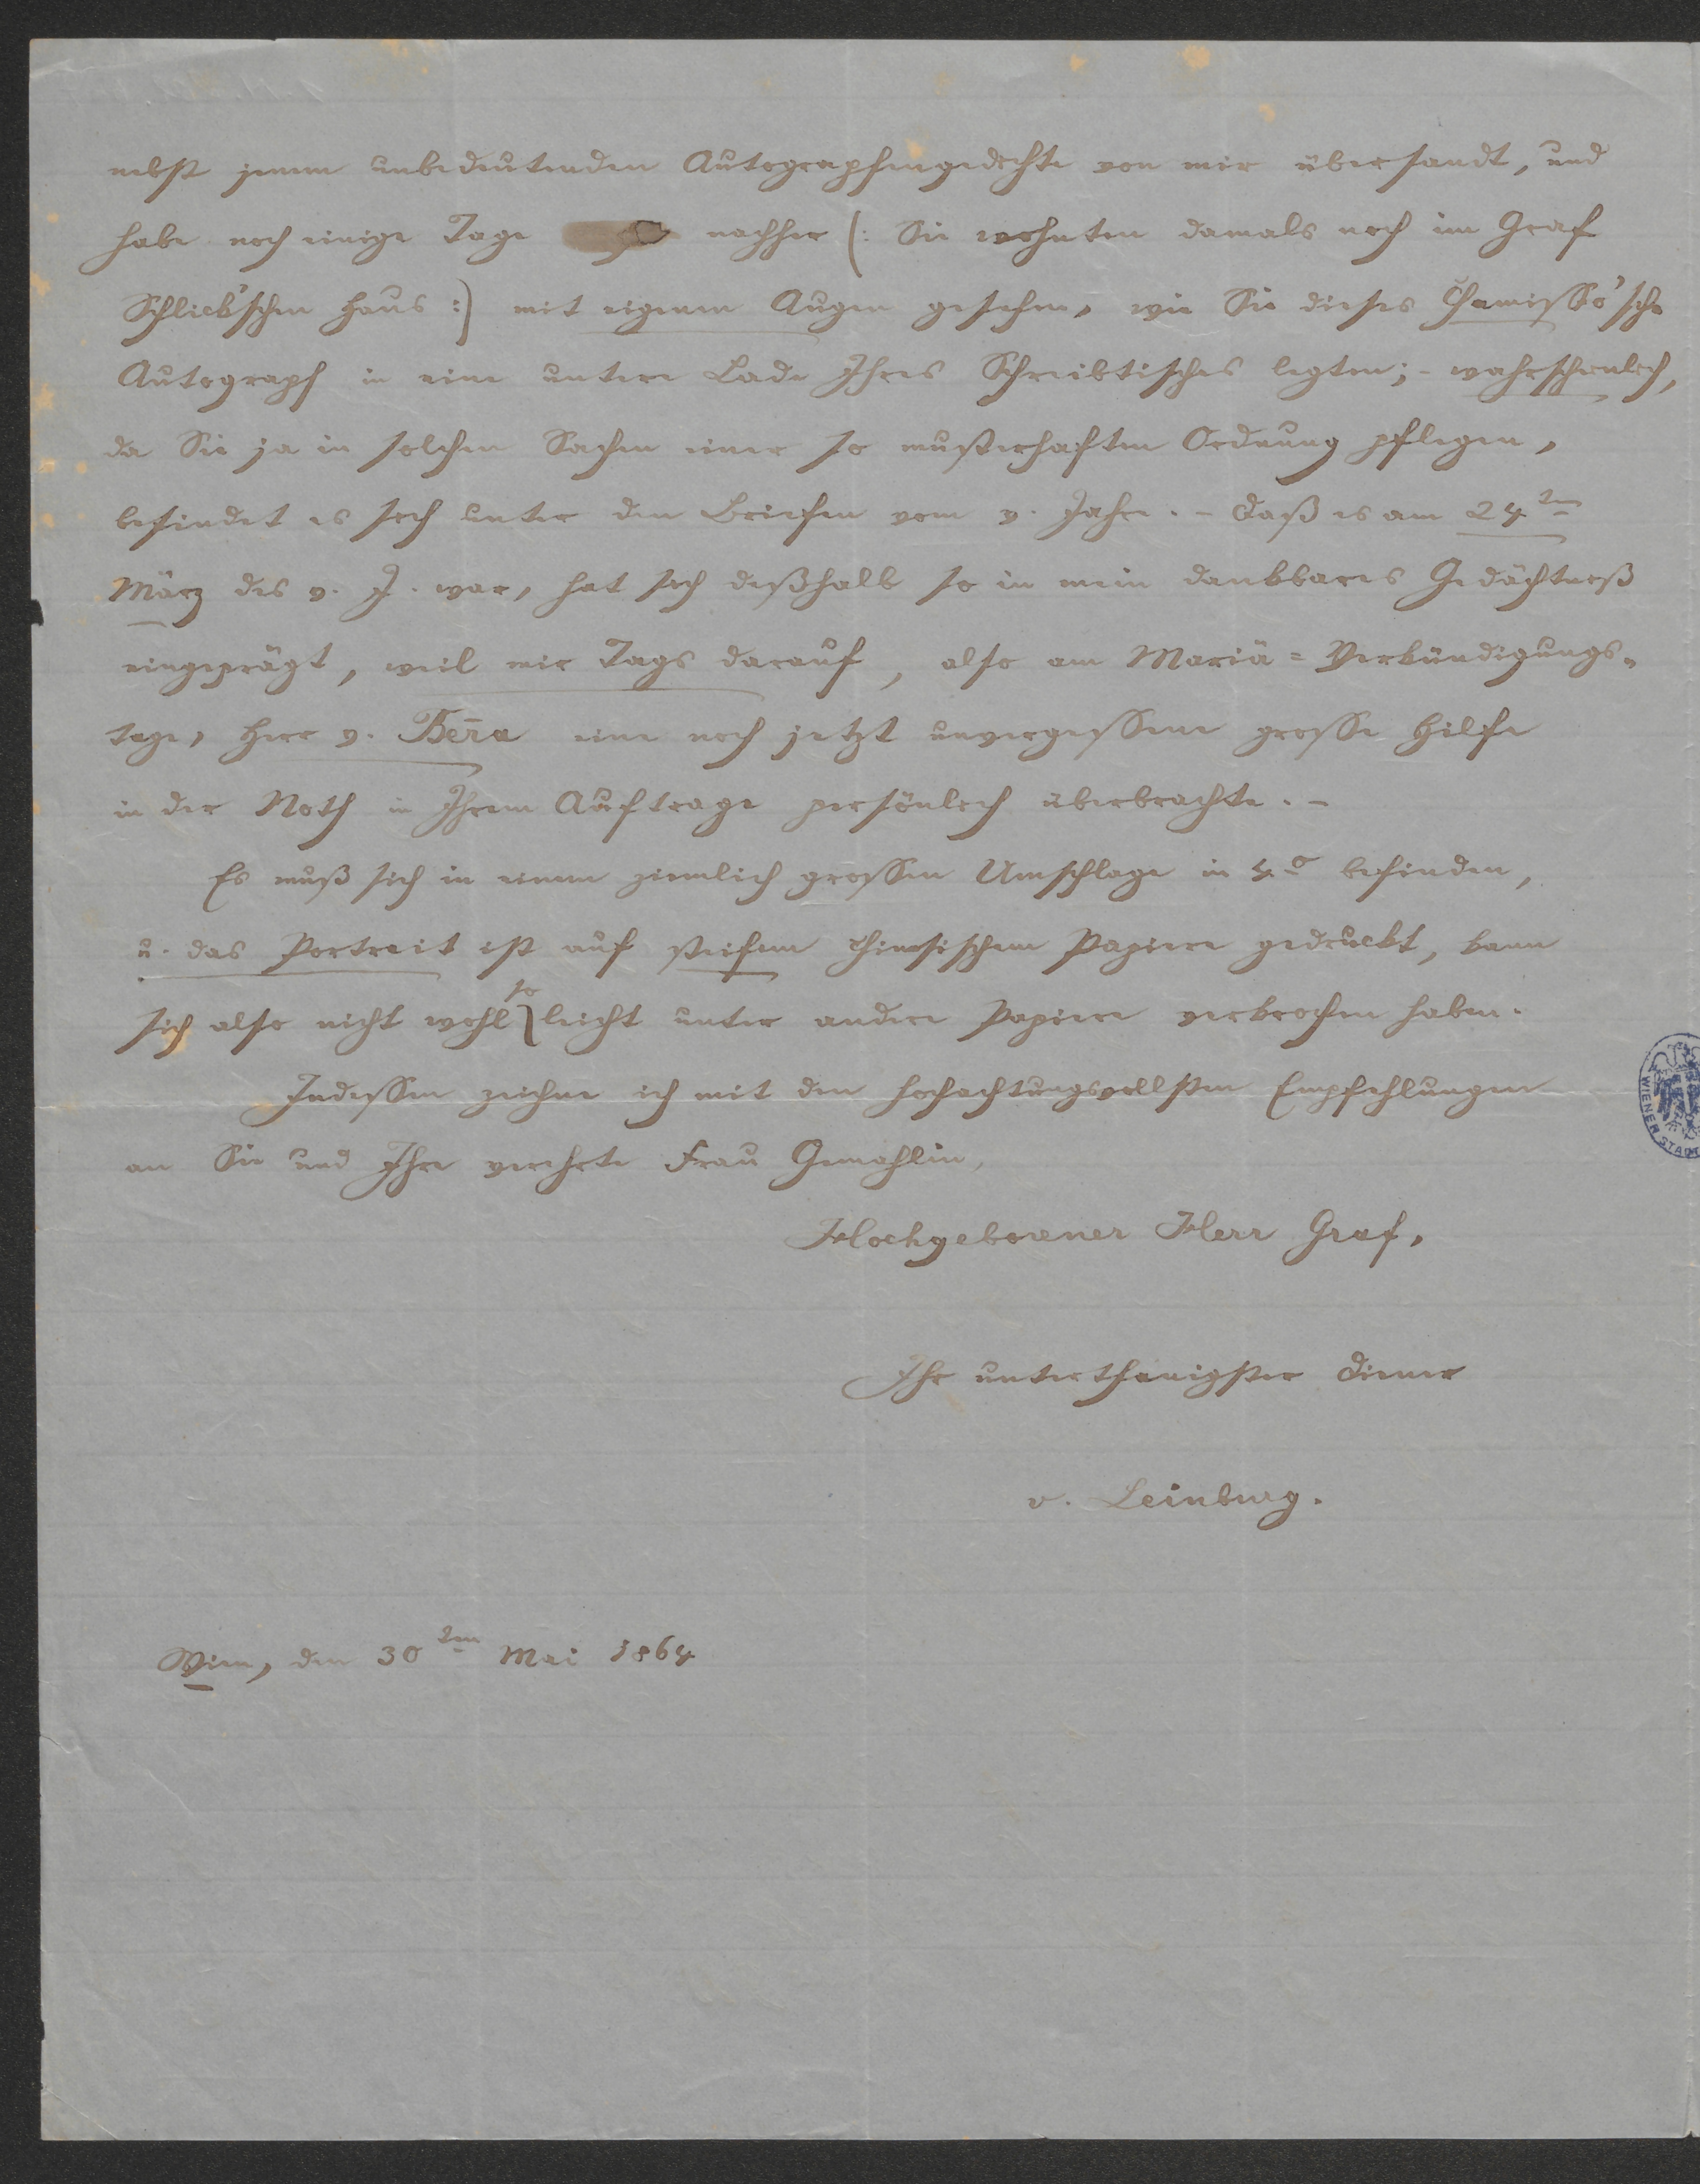 nebst jenem unbedeutenden Autographengedichte von mir übersandt, und
habe noch einige Tage nachher (: Sie wohnten damals noch im Graf
Schlick'schen Haus :) mit eigenen Augen gesehen, wie Sie dieses Chamisso'sche
Autograph in eine untere Lade Ihres Schreibtisches legten; - wahrscheinlich,
da Sie ja in solchen Sachen einer so musterhaften Ordnung pflegen,
befindet es sich unter den Briefen vom v. Jahre. - Daß es am 24.ten
März des v. J. war, hat sich deßhalb so in mein dankbares Gedächtniß
eingeprägt, weil mir Tags darauf, also am Mariä=Verkündigungs-
tage, Herr v. eine noch jetzt unvergessene grosse Hilfe
in der Noth in Ihrem Auftrage persönlich überbrachte. -
Es muß sich in einem ziemlich grossen Umschlage in 4.o befinden,
u. das Portrait ist auf steifem chinesischem Papiere gedruckt, kann
sich also nicht wohl so leicht unter andere Papiere verkrochen haben.
Indessen zeichne ich mit den hochachtungsvollsten Empfehlungen
an Sie und Ihre verehrte Frau Gemahlin,
Hochgeborener Herr Graf,
Ihr unterthänigster Diener
v. Leinburg.
Wien, den 30ten Mai 1864
WIENER STADT